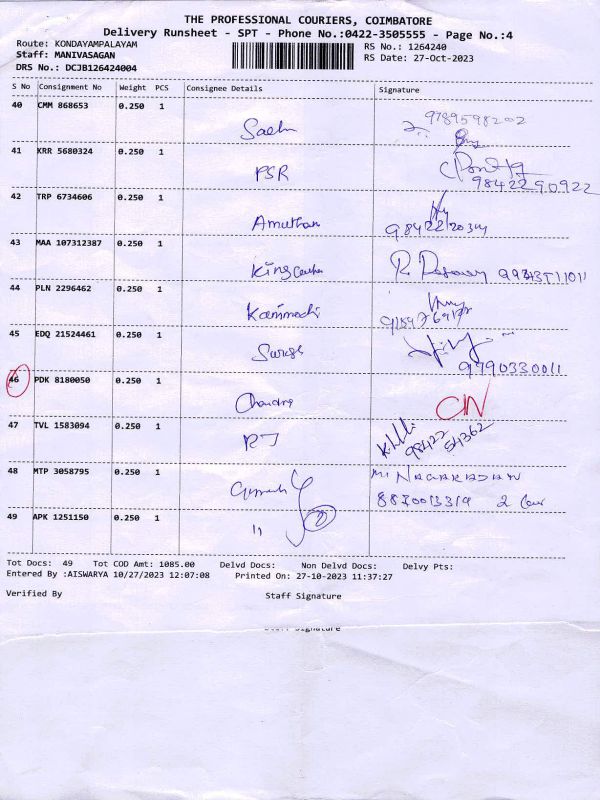 THE PROFESSIONAL COURIERS, COIMBATORE
Delivery Runsheet - SPT - Phone No.:0422-3505555 - Page No.:4
Route: KONDAYAMPALAYAM
Staff: MANIVASAGAN
DRS No.: DCJB126424004
RS No.: 1264240
RS Date: 27-Oct-2023
S No Consignment No Weight PCS Consignee Details Signature
40 CMM 868653 0.250 1
9789598202
41 KRR 5680324 0.250 1 PSR
9842290922
42 TRP 6734606 0.250 1 Amuthan
43 MAA 107312387 0.250 1
44 PLN 2296462 0.250 1
45 EDQ 21524461 0.250 1
9790330011
46 PDK 8180050 0.250 1 Chandra
47 TVL 1583094 0.250 1
98422
54362
48 MTP 3058795 0.250 1
8870013319
49 APK 1251150 0.250 1 11
Tot Docs: 49 Tot COD Amt: 1085.00 Delvd Docs: Non Delvd Docs: Delvy Pts:
Entered By :AISWARYA 10/27/2023 12:07:08 Printed On: 27-10-2023 11:37:27
Verified By Staff Signature
Staff Signature